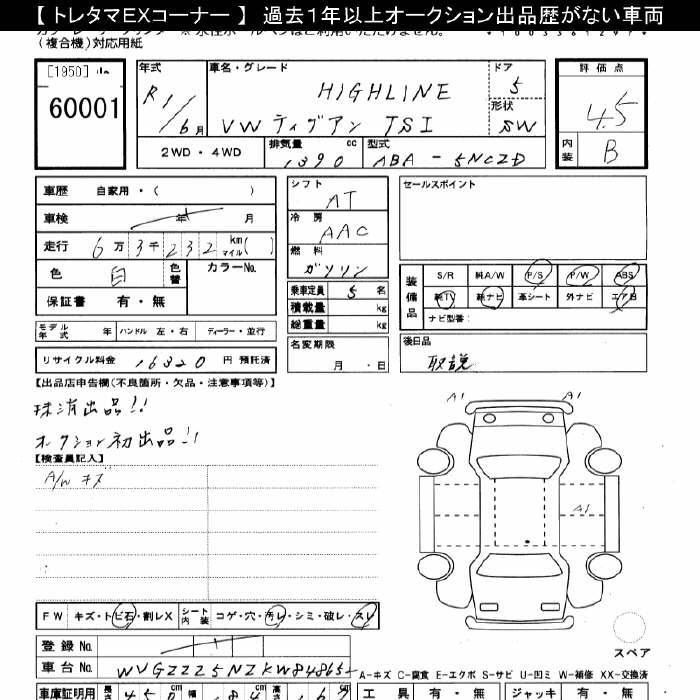 【 トレタマEXコーナー 】 過去1年以上オークション出品歴がない車両
(複合機)対応用紙
[1950] 年式 車名・グレード ドア 評価点
60001 R1/6月 HIGHLINE 5 4.5
VW ティグアン TSI 形状 SW
2WD・4WD 排気量 1390 cc 型式 ABA-5NCZD 内装 B
車歴 自家用・( ) シフト AT セールスポイント
車検 年 月 冷房 AAC
走行 6万3千232 km マイル( ) 燃料 ガソリン
色 白 色替 カラーNo. 装備品 S/R 純A/W P/S P/W ABS
保証書 有・無 乗車定員 5 名 純TV 純ナビ 革シート 外ナビ エアB
積載量 kg ナビ型番:
モデル年式 年 ハンドル 左・右 ディーラー・並行 総重量 kg
リサイクル料金 16320 円 預託済 名変期限 月・日 後日品 取説
【出品店申告欄(不良箇所・欠品・注意事項等)】
抹消出品!!
オークション初出品!!
【検査員記入】
A/W キズ
A1 A1
A1
FW キズ・トビ石・割レX シート内装 コゲ・穴・汚レ・シミ・破レ・スレ
登録 No.
車台 No. WVGZZZ5NZKW848655
スペア
A-キズ C-腐食 E-エクボ S-サビ U-凹ミ W-補修 XX-交換済
車庫証明用 長さ 450 幅 184 高さ 167 工具 有・無 ジャッキ 有・無